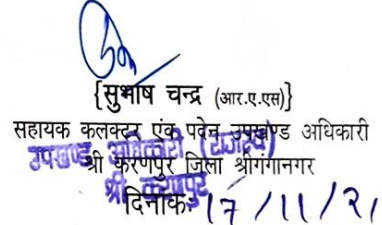 {सुभाष चन्द्र (आर.ए.एस)}
सहायक कलक्टर एंक पदेन उपखण्ड अधिकारी
उपखण्ड अधिकारी (राजस्व)
श्री करणपुर जिला श्रीगंगानगर
श्री करणपुर
दिनांक 17/11/21